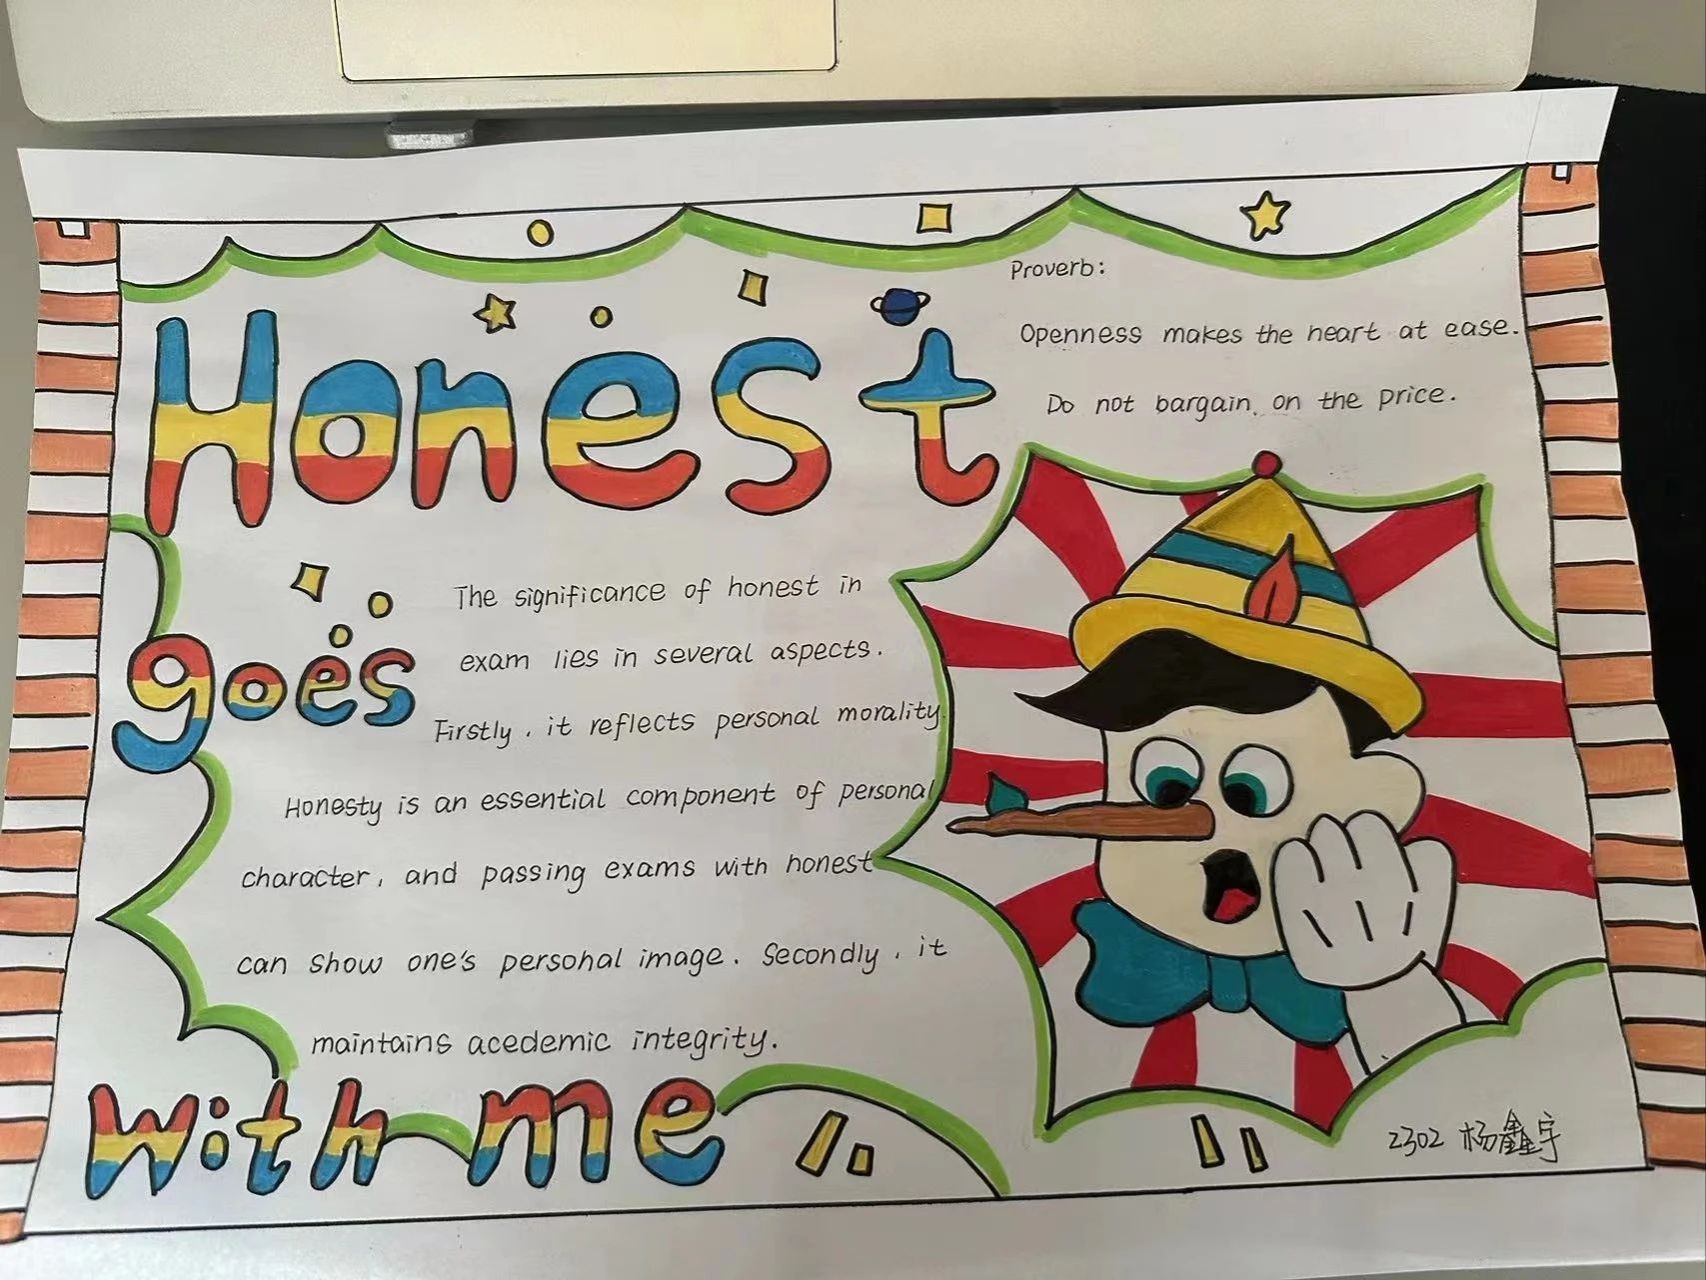 Honest
goes
with me
Proverb:
Openness makes the heart at ease.
Do not bargain on the price.
The significance of honest in
exam lies in several aspects.
Firstly, it reflects personal morality.
Honesty is an essential component of personal
character, and passing exams with honest
can show one's personal image. Secondly, it
maintains acedemic integrity.
2302 杨鑫宇